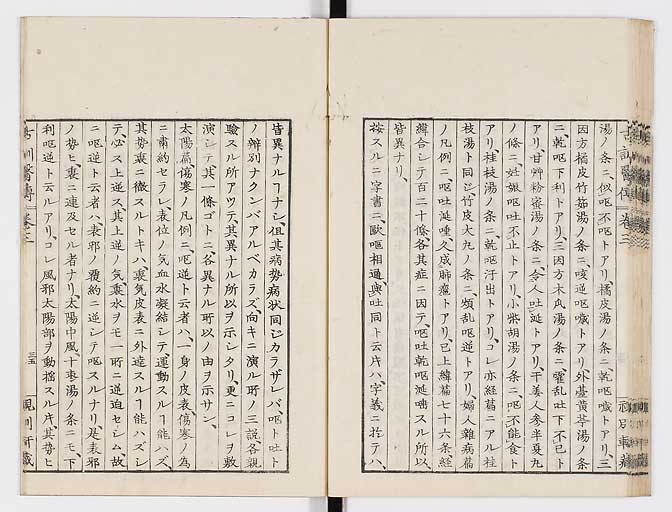 湯ノ条ニ、似呕不呕トアリ、橘皮湯ノ条ニ、乾呕噦トアリ、三
因方橘皮竹茹湯ノ条ニ、咳逆呕噦トアリ、外臺黄芩湯ノ条
ニ、乾呕下利トアリ、三因方木瓜湯ノ条ニ、霍乱吐下不已ト
アリ、甘艸粉蜜湯ノ条ニ、令人吐涎トアリ、干姜人参半夏丸
ノ條ニ、妊娠呕吐不止トアリ、小柴胡湯ノ条ニ、呕不能食ト
アリ、桂枝湯ノ条ニ、乾呕汗出トアリ、コレ亦経篇ニアル桂
枝湯ト同シ、竹皮大丸ノ条ニ、煩乱呕逆トアリ、婦人雜病篇
ノ凡例ニ、呕吐涎唾、久成肺癰トアリ、已上緯篇七十六条、経
緯合シテ百二十條、各其症ニ因テ、呕吐乾呕涎唾スル所以、
皆異ナリ、
按スルニ字書ニ、歐呕相通與吐同ト云片ハ、字義ニ於テハ、
皆異ナルヿナシ、但其病勢病状同シカラザレバ、呕ト吐ト
ノ辨別ナクンバアルベカラズ、向キニ演ル所ノ三説、各親
驗スル所アツテ、其異ナル所以ヲ示シタリ、更ニコレヲ敷
演シテ、其一條ゴトニ、各異ナル所以ノ由ヲ示サン、
太陽篇、傷寒ノ凡例ニ、呕逆ト云者ハ、一身ノ皮表傷寒ノ為
ニ肅約セラレ、表位ノ気血水凝結シテ、運動スルヿ能ハズ、
其勢裏ニ徹スルトキハ、裏気皮表ニ外達スルヿ能ハズシ
テ、必ス上逆ス、其上逆ノ気裏水ヲモ一所ニ逆迫セシム、故
ニ呕逆ト云者ハ、表邪ノ覆約ニ逆シテ呕スルナリ、是表邪
ノ勢ヒ、裏ニ連及セル者ナリ、太陽中風十棗湯ノ条ニモ、下
利呕逆ト云ルアリ、コレ風邪太陽部ヲ動揺スル片、其勢ヒ